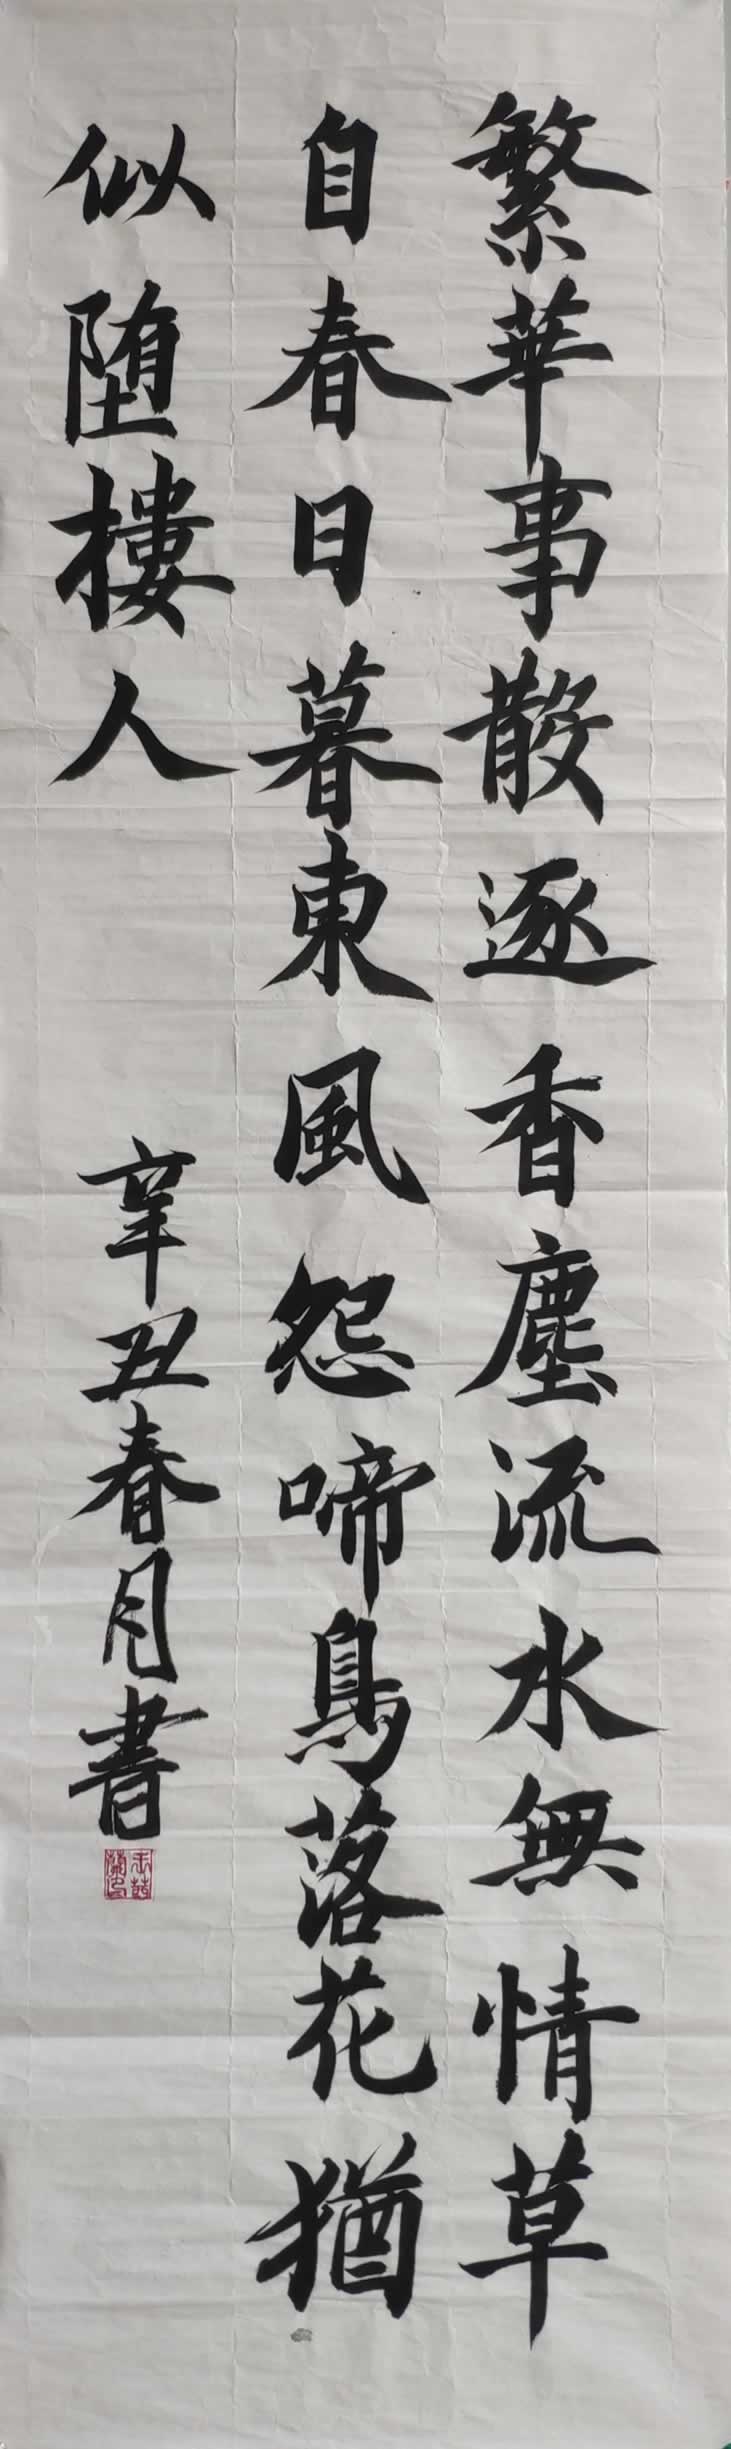 繁華事散逐香塵流水無情草
自春日暮東風怨啼鳥落花猶
似堕樓人
辛丑春月書